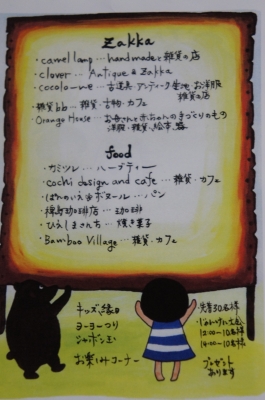 zakka
・camel lamp … handmadeと雑貨の店
・clover … Antique & Zakka
・cocolo-ne … 古道具 アンティーク生地 お洋服
雑貨の店
・雑貨bb … 雑貨・古物・カフェ
・Orange House … お母さんと赤ちゃんの手づくりのもの
洋服・雑貨・絵本
food
・カミツレ … ハーブティー
・cochi design and cafe … 雑貨・カフェ
・ぱんのいえ ボヌール … パン
・珈琲店 … 珈琲
・ひえしまさんち … 焼き菓子
・Bamboo Village … 雑貨・カフェ
キッズ縁日
ヨーヨーつり
シャボン玉
お楽しみコーナー
先着30名様
12:00〜10名様
14:00〜10名様
プレゼント
あります